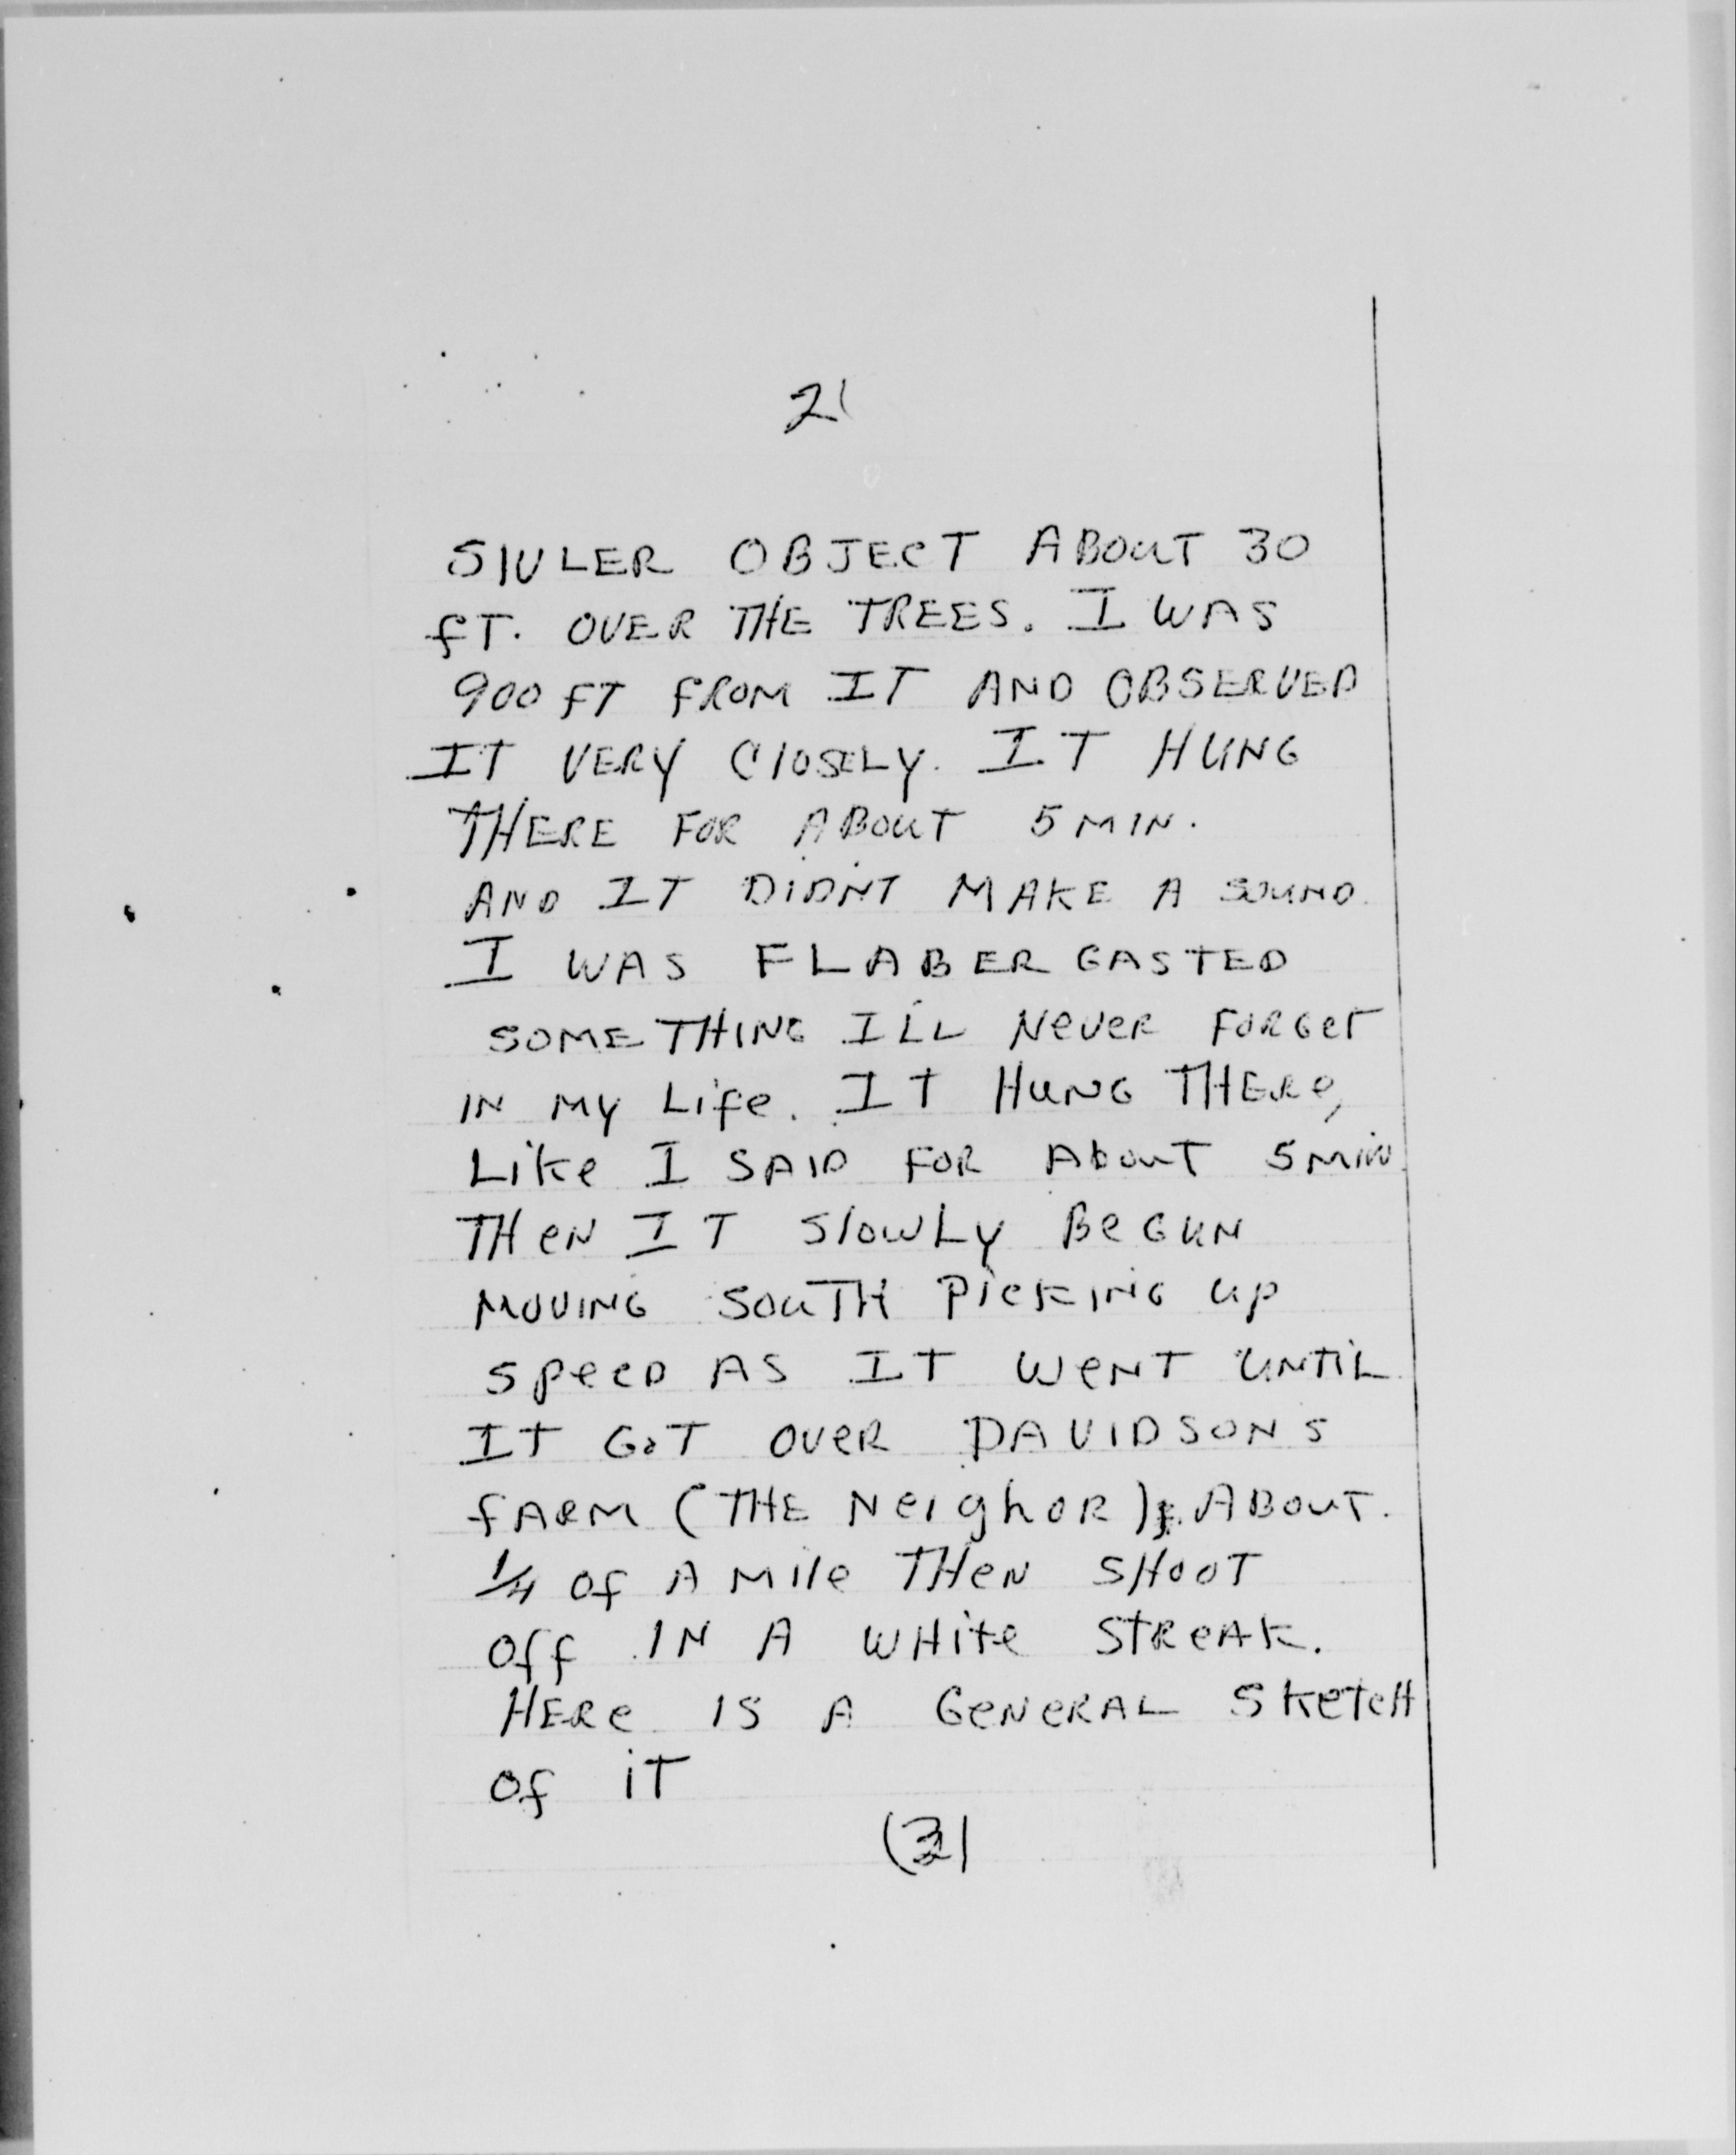 2
SIVLER OBJECT ABOUT 30
FT. OVER THE TREES. I WAS
900 FT FROM IT AND OBSERVED
IT VERY CLOSELY. IT HUNG
THERE FOR ABOUT 5 MIN.
AND IT DIDNT MAKE A SOUND.
I WAS FLABERGASTED
SOMETHING I'LL NEVER FORGET
IN MY LIFE. IT HUNG THERE,
LIKE I SAID FOR ABOUT 5 MIN.
THEN IT SLOWLY BEGUN
MOVING SOUTH PICKING UP
SPEED AS IT WENT UNTIL
IT GOT OVER DAVIDSONS
FARM (THE NEIGHOR) ABOUT
1/4 OF A MILE THEN SHOOT
OFF IN A WHITE STREAK.
HERE IS A GENERAL SKETCH
OF IT